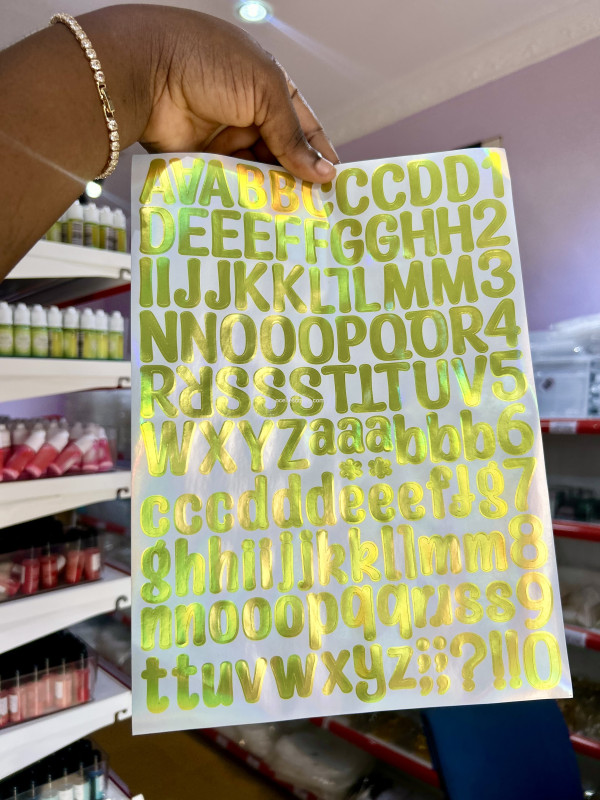 AAABBCCCDD1
DEEEFFGGHH2
IIJJKKLLLMM3
NNOOOPQQR4
RRSSSTTTUV5
WXYZaaabbb6
cccdddeeeffg7
ghhiijjkkllmm8
nnooopqqrrsss9
ttuvwxyz;;?!!0